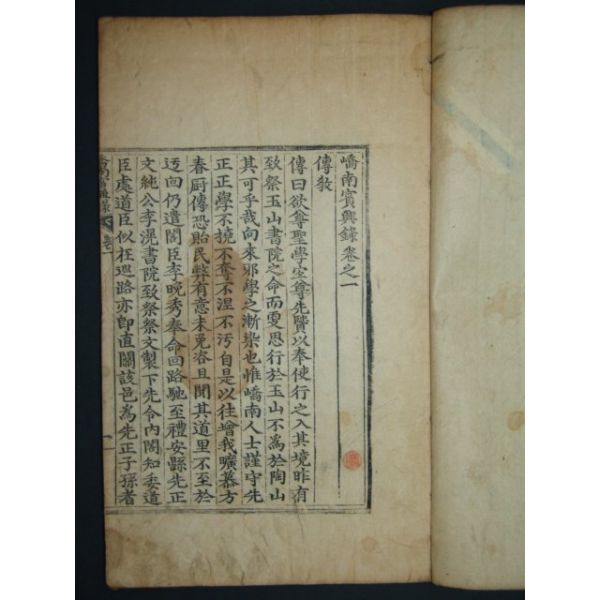 嶠南賓興錄卷之一
傳敎
傳曰欲尊聖學宜尊先賢以奉使行之入其境昨有
致祭玉山書院之命而更思行於玉山不爲於陶山
其可乎哉向來邪學之漸染也惟嶠南人士謹守先
正正學不撓不奪不涅不汚自是以往增我曠慕方
春厨傳恐貽民弊有意未免咨且聞其道里不至於
迂回仍遣閣臣李晚秀奉命回路馳至禮安縣先正
文純公李滉書院致祭祭文製下先令內閣知委道
臣處道臣似在巡路亦卽直關該邑爲先正子孫者